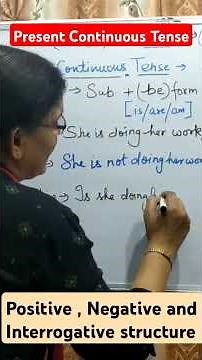 Present Continuous Tense
Continuous Tense
→ Sub + (be) form
[is/are/am]
She is doing her work
She is not doing her wor
→ Is she doing
Positive , Negative and
Interrogative structure